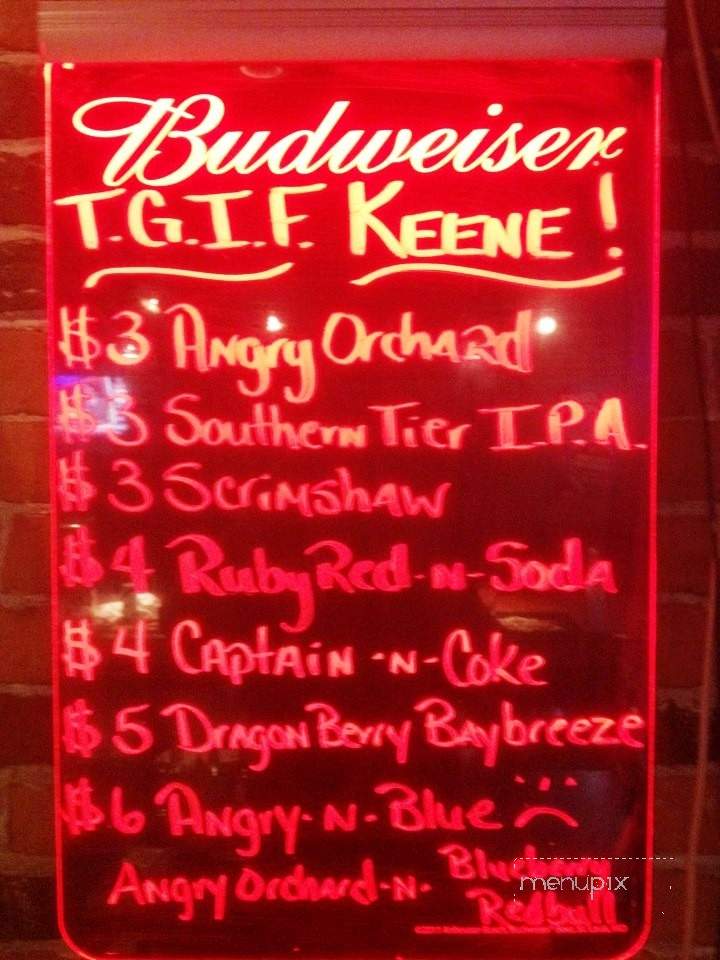 Budweiser
T.G.I.F. KEENE!
$3 Angry Orchard
$3 Southern Tier I.P.A.
$3 Scrimshaw
$4 Ruby Red-n-Soda
$4 Captain-n-Coke
$5 Dragon Berry Baybreeze
$6 Angry-n-Blue
Angry Orchard-n-
Redbull
menupix